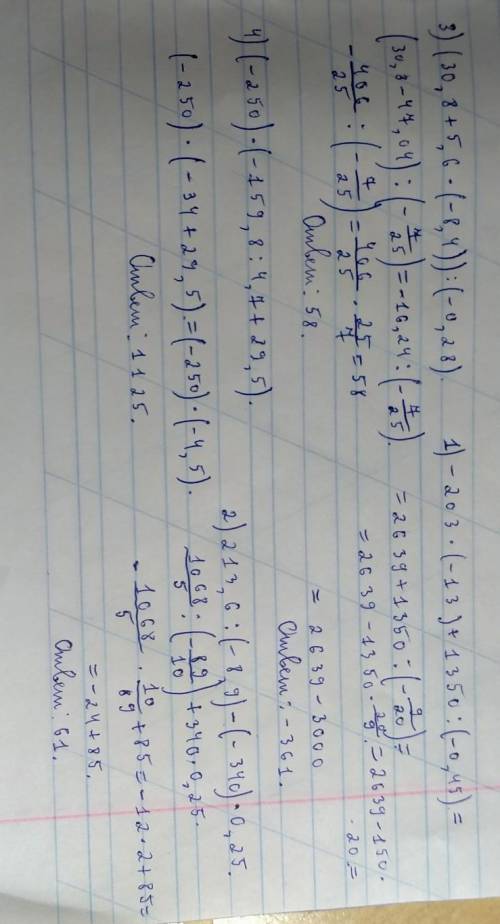 3) (30,8+5,6·(-8,4)):(-0,28).
(30,8-47,04):(-7/25)=-16,24:(-7/25).
-406/25:(-7/25)=406/25·25/7=58
Ответ: 58.
4) (-250)·(-159,8:4,7+29,5).
(-250)·(-34+29,5)=(-250)·(-4,5).
Ответ: 1125.
1) -203·(-13)+1350:(-0,45)=
=2639+1350:(-9/20)=
=2639-1350·20/9=2639-150·
·20=
=2639-3000
Ответ: -361.
2) 213,6:(-8,9)-(-340)·0,25.
1068/5:(-89/10)+340·0,25.
-1068/5·10/89+85=-12·2+85=
=-24+85.
Ответ: 61.